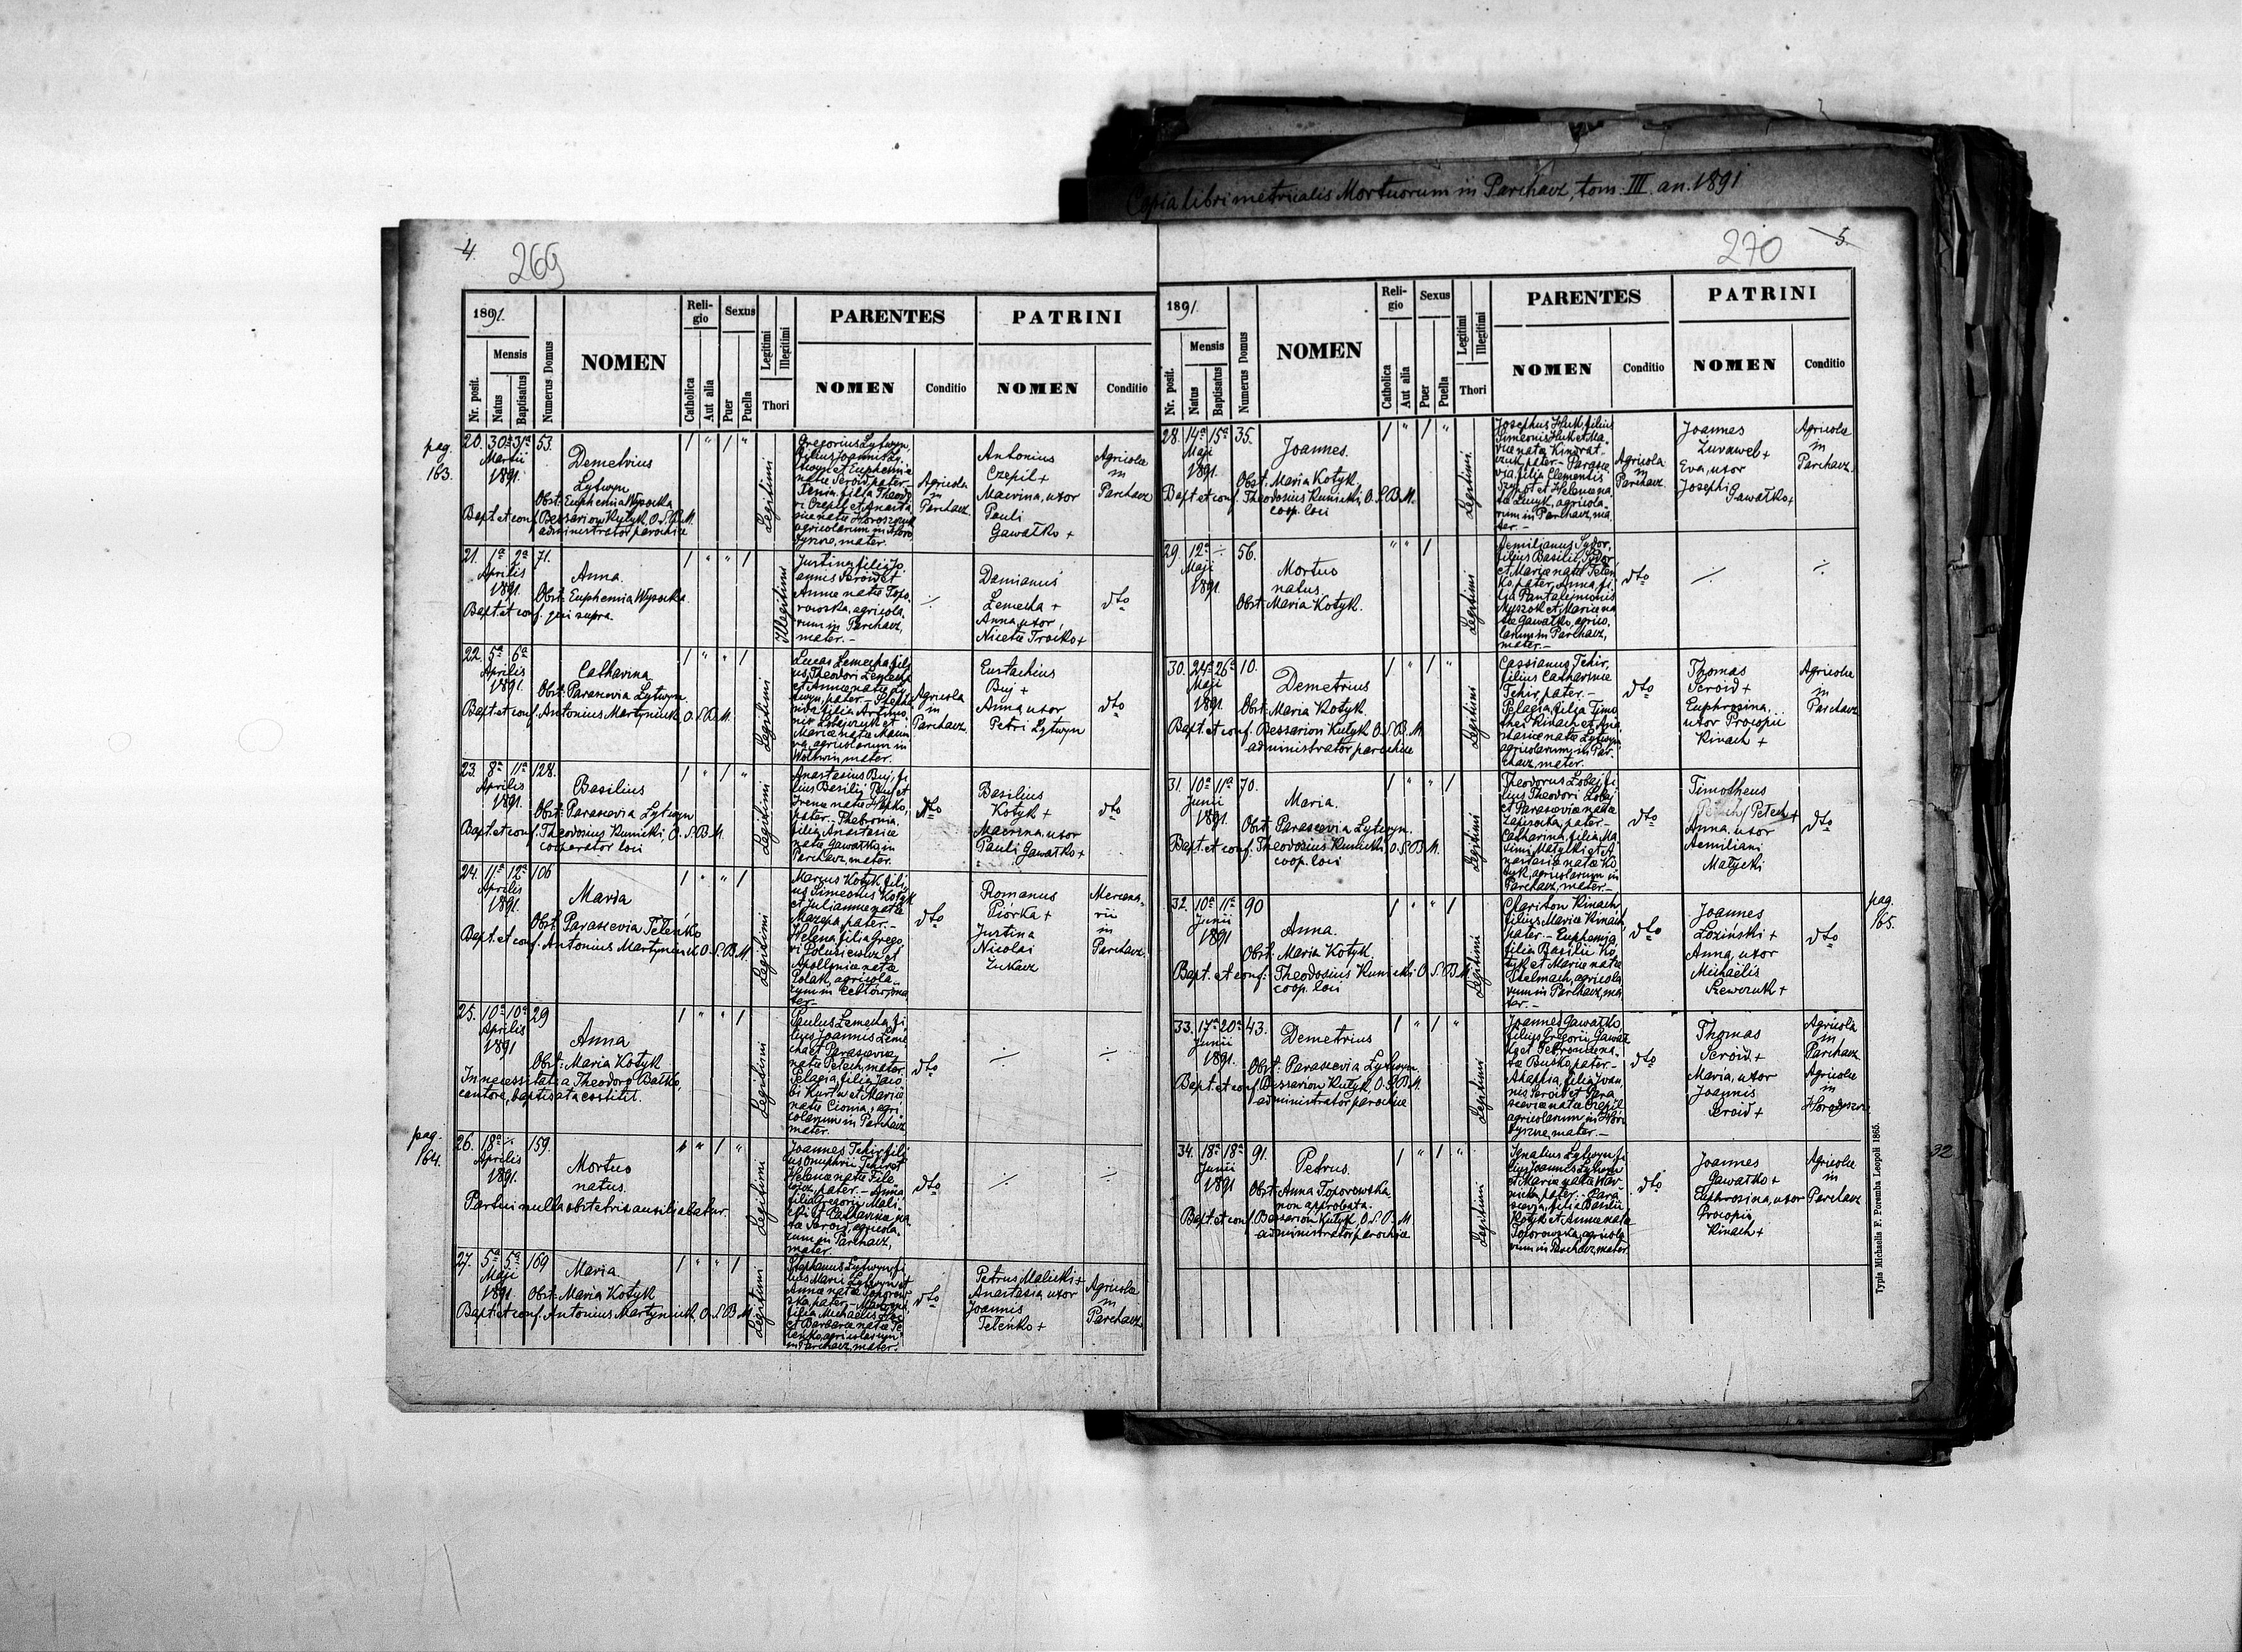 Copia libri metricalis Mortuorum in Parchacz, tom. III. an. 1891
4.
269
1891.
Nr. posit.
Mensis
Natus
Baptisatus
Numerus Domus
NOMEN
Religio
Catholica
Aut alia
Sexus
Puer
Puella
Legitimi
Illegitimi
Thori
PARENTES
NOMEN
Conditio
PATRINI
NOMEN
Conditio
pag.
163.
20. 30a 31a 53.
Martii
1891.
Demetrius
Lytwyn
Obst: Euphemia Wysocka
Bapt. et conf. Bessarion Kułyk, O. S. B. M.
administrator parochiæ
Legitimi
Gregorius Lytwyn,
filius Joannis Ly-
twyn et Euphemiæ
natæ Seroid, pater.-
Xenia, filia Theodo-
ri Czepil et Anasta-
siæ natæ
agricolarum in Horo-
dyszcze, mater.
Agricola
in
Parchacz.
Antonius
Czepil +
Macrina, uxor
Pauli
Gawałko +
Agricolæ
in
Parchacz
21. 1a 2a 71.
Aprilis
1891.
Anna.
Obst: Euphemia Wysocka.
Bapt. et conf. qui supra.
Illegitimi
Justina, filia Jo-
annis Seroid et
Annæ natæ Topo-
rowska, agricola-
rum in Parchacz,
mater.-
Damianus
Lemecha +
Anna, uxor,
Nicetæ Troiko +
dto
22. 5a 6a
Aprilis
1891.
Catharina
Obst: Parascevia Lytwyn
Bapt. et conf. Antonius Martyniuk, O. S. B. M.
Legitimi
Lucas Lemecha, fili-
us Theodori Lemecha
et Annæ natæ Ly-
twyn, pater.-
nida, filia
et
Mariæ natæ
agricolarum in
mater.
Agricola
in
Parchacz.
Eustachius
Buj +
Anna uxor
Petri Lytwyn
dto
23. 8a 11a 128.
Aprilis
1891.
Basilius
Obst: Parascevia Lytwyn
Bapt. et conf. Theodosius Kunicki, O. S. B. M.
cooperator loci
Legitimi
Anastasius Buj, fi-
lius Basilii Buj et
Irenæ natæ
pater.- Thebronia,
filia Anastasiæ
natæ Gawałko in
Parchacz, mater.
dto
Basilius
Kotyk +
Macrina, uxor
Pauli Gawałko +
dto
24. 11a 12a 106
Aprilis
1891.
Maria
Obst: Parascevia Teleńko
Bapt. et conf. Antonius Martyniuk O. S. B. M.
Legitimi
Marcus Kotyk, fili-
us Simeonis Kotyk
et Juliannæ natæ
Mazepa, pater.-
Helena, filia Grego-
rii et
Apolloniæ natæ
Polak, agricola-
rum in ma-
ter.-
dto
Romanus
Piórka +
Justina
Nicolai
Mercena-
rii
in
Parchacz.
25. 10a 10a 29
Aprilis
1891
Anna
Obst: Maria Kotyk
In necessitate a Theodoro Bałko,
cantore, baptisata costitit.
Legitimi
Paulus Lemecha, fi-
lius Joannis Leme-
cha et Parasceviæ
natæ Petech, mater.
Pelagia, filia Jaco-
bi et Mariæ
natæ agri-
colarum in Parchacz
mater.
dto
pag.
164.
26. 18a 159.
Aprilis
1891.
Mortuo
natus.
Partui nulla obstetrix auxiliabatur.
Legitimi
Joannes Tchir, fili-
us Onuphrii Tchir et
Helenæ natæ
pater.- Anna,
filia Gregorii Mali-
cki et Catharinæ, na-
tæ Seroid, agricola-
rum in Parchacz,
mater.
dto
27. 5a 5a 169
Maji
1891
Maria.
Obst: Maria Kotyk
Bapt. et conf. Antonius Martyniuk, O. S. B. M.
Legitimi
Stephanus Lytwyn, fi-
lius Marci Lytwyn et
Annæ natæ Toporow-
ska, pater.-
filia Michaelis
et Barbaræ natæ Te-
leńko, agricolarum
in Parchacz, mater.
dto
Petrus Malicki +
Anastasia uxor
Joannis
Teleńko +
Agricolæ
in
Parchacz.
270
5.
1891.
Nr. posit.
Mensis
Natus
Baptisatus
Numerus Domus
NOMEN
Religio
Catholica
Aut alia
Sexus
Puer
Puella
Legitimi
Illegitimi
Thori
PARENTES
NOMEN
Conditio
PATRINI
NOMEN
Conditio
28. 14a 15a 35.
Maji
1891.
Joannes.
Obst: Maria Kotyk
Bapt. et conf. Theodosius Kunicki, O. S. B. M.
coop. loci
Legitimi.
Josephus Huk, filius
Simeonis Huk et Ma-
riæ natæ Kindrat-
czuk, pater.- Parasce-
via, filia Clementis
et Helenæ na-
tæ agricola-
rum in Parchacz, ma-
ter.-
Agricola
in
Parchacz.
Joannes
Żurawel +
Eva, uxor
Josephi
Gawałko +
Agricolæ
in
Parchacz.
29. 12a 56.
Maji
1891.
Mortuo
natus
Obst: Maria Kotyk.
Legitimi
Aemilianus Sydor,
filius Basilii Sydor
et Mariæ natæ Teleń-
ko, pater. Anna, fi-
lia Pantaleimonis
Myszok et Mariæ na-
tæ Gawałko, agrico-
larum in Parchacz,
mater.-
dto
30. 24a 26a 10.
Maji
1891
Demetrius
Obst: Maria Kotyk.
Bapt. et conf. Bessarion Kułyk O. S. B. M.
administrator parochiæ
Legitimi
Cassianus Tchir,
filius Catharinæ
Tchir, pater.-
Pelagia, filia Timo-
thei Kinach et Ana-
stasiæ natæ Lytwyn
agricolarum in Par-
chacz, mater.
dto
Thomas
Seroid +
Euphrosina,
uxor Procopii
Kinach +
Agricolæ
in
Parchacz
31. 10a 11a 70.
Junii
1891.
Maria.
Obst: Parascevia Lytwyn.
Bapt. et conf. Theodosius Kunicki O. S. B. M.
coop. loci
Legitimi
Theodorus Łobaj, fi-
lius Theodori Łobaj
et Parasceviæ natæ
pater.-
Catharina, filia Ma-
ximi Małycki et A-
nastasiæ natæ Ko-
tyk, agricolarum in
Parchacz, mater.-
dto
Timotheus
Petech +
Anna, uxor
Aemiliani
Małycki
dto
pag.
165.
32. 10a 11a 90
Junii
1891
Anna.
Obst: Maria Kotyk
Bapt. et conf: Theodosius Kunicki O. S. B. M.
coop. loci
Legitimi
Chariton Kinach
filius Mariæ Kinach,
pater.- Euphemia,
filia Basilii Ko-
tyk et Mariæ natæ
Stelmach, agricola-
rum in Parchacz, ma-
ter.-
dto
Joannes
Łoziński +
Anna, uxor
Michaëlis
Szewczuk +
dto
33. 17a 20a 43.
Junii
1891.
Demetrius
Obst: Parascevia Lytwyn.
Bapt. et conf. Bessarion Kułyk, O. S. B. M.
administrator parochiæ
Legitimi
Joannes Gawałko,
filius Gregorii Gawał-
ko et Petronellæ na-
tæ pater.-
Ahaphia, filia Joan-
nis Seroid et Para-
sceviæ natæ Czepil
agricolarum in Horo-
dyszcze, mater.-
dto
Thomas
Seroid +
Maria, uxor
Joannis
Seroid +
Agricola
in
Parchacz
Agricolæ
in
Horodyszcze
34. 18a 18a 91.
Junii
1891
Petrus.
Obst: Anna Toporowska,
non approbata.
Bapt. et conf. Bessarion Kułyk, O. S. B. M.
administrator parochiæ
Legitimi
Ignatius Lytwyn, fi-
lius Joannis Lytwyn
et Mariæ natæ
pater.- Para-
scevia, filia Basilii
Kotyk et Annæ natæ
Toporowska, agricola-
rum in Parchacz, mater.
dto
Joannes
Gawałko +
Euphrosina, uxor
Procopii
Kinach +
Agricolæ
in
Parchacz
Typis Michaelis F. Poremba Leopoli 1865.
32